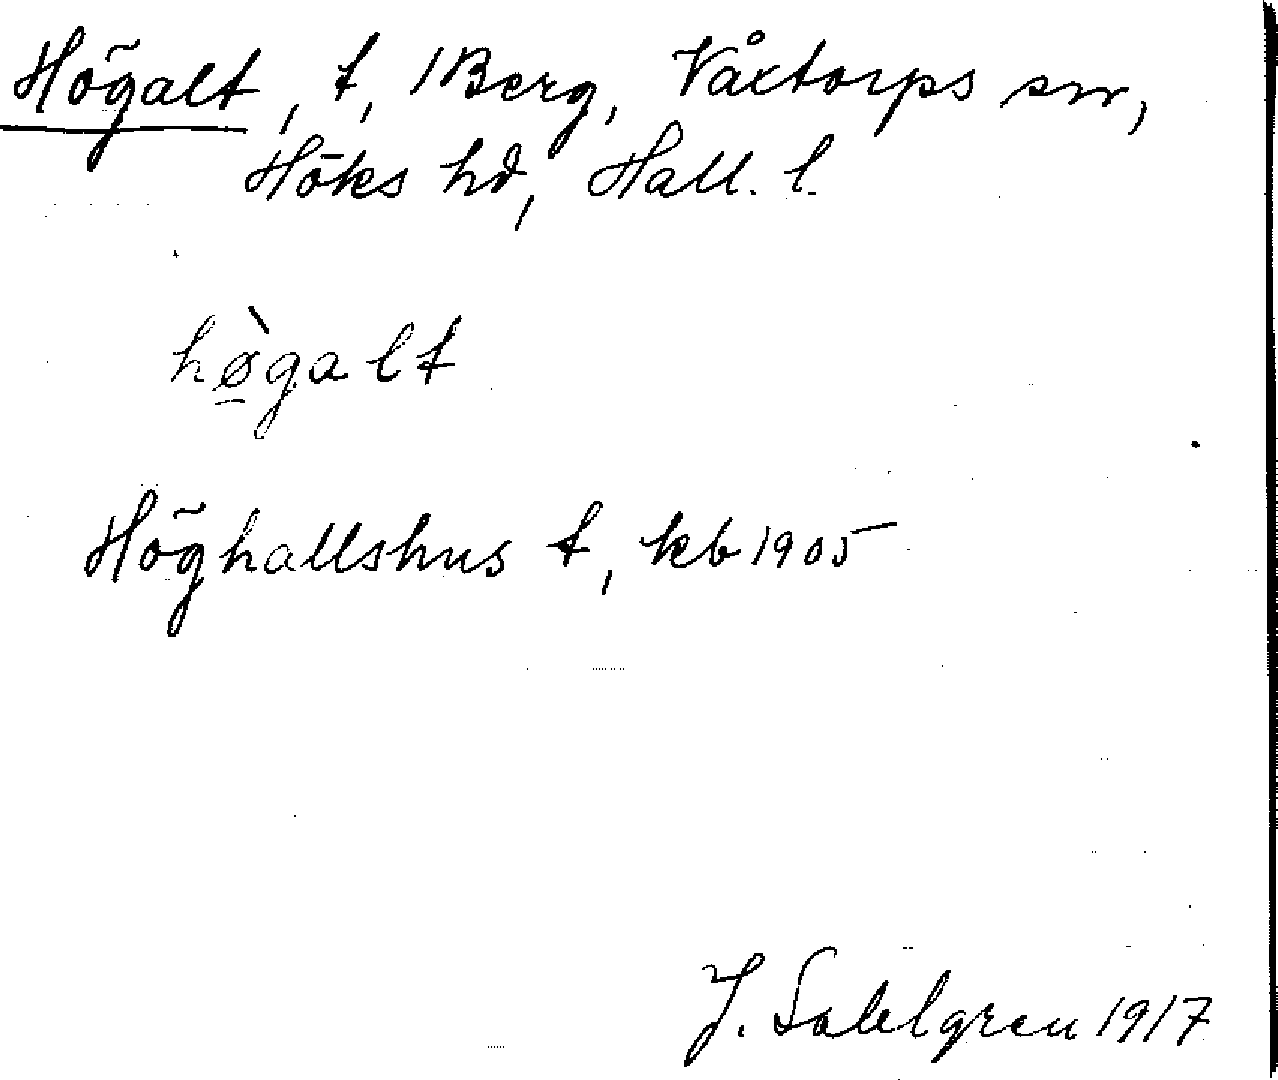 Högalt, t, 1 Berg, Våxtorps sn,
Höks hd, Hall. l.
hø̱̀galt
Höghallshus t, kb 1905
J. Sahlgren 1917